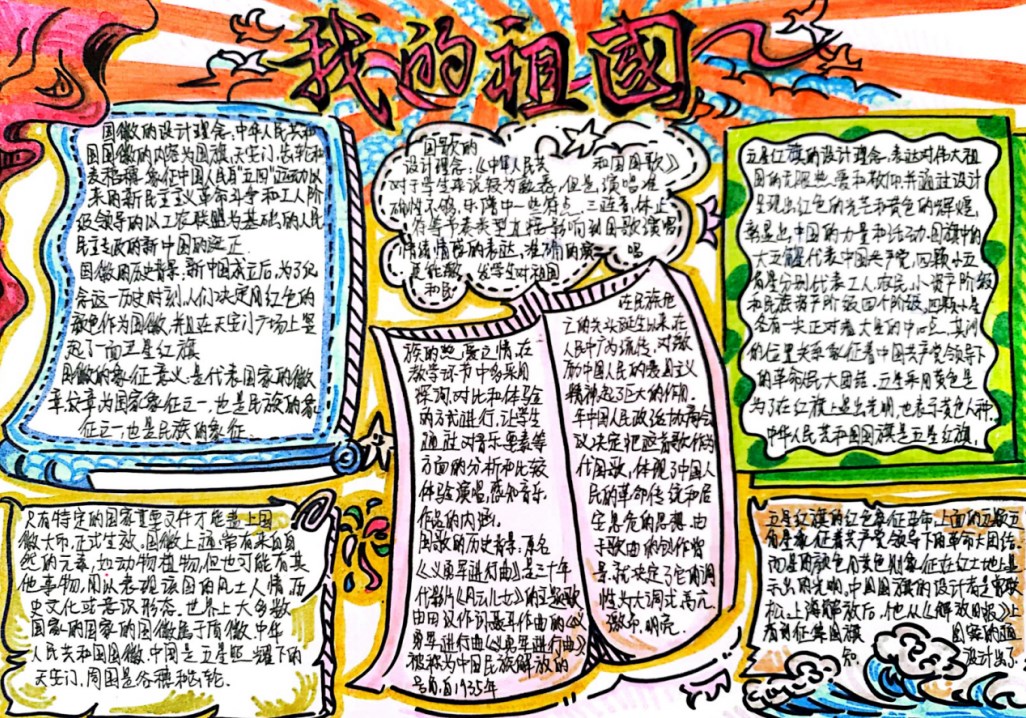 我的祖國
国徽的设计理念:中华人民共和
国国徽的内容为国旗、天安门、齿轮和
麦稻穗,象征中国人民自"五四"运动以
来的新民主主义革命斗争和工人阶
级领导的以工农联盟为基础的人民
民主专政的新中国的诞生
国徽历史背景:新中国成立后,为了纪
念这一历史时刻,人们决定用红色的
颜色作为国徽,并且在天安门广场上竖
起了一面五星红旗
国徽的象征意义:是代表国家的徽
章,纹章为国家象征之一,也是民族的象
征之一,也是民族的象征
只有特定的国家重要文件才能盖上国
徽大印,正式生效。国徽上通常有来自自
然的元素,如动物植物,但也可能有其
他事物,用以表现该国的风土人情、历
史文化或意识形态。世界上大多数
国家的国家的国徽属于盾徽,中华
人民共和国国徽,中间是五星照耀下的
天安门,周围是谷穗和齿轮.
国歌的
设计理念:《中华人民共和国国歌》
对于学生来说较为熟悉,但是,演唱准
确性不够,乐谱中一些符点、三连音、休止
符等节奏类型直接影响到国歌演唱
情绪情感的表达,准确的演唱
更能激发学生对祖国
和民
族的热爱之情,在
教学环节中多采用
探询、对比和体验
的方式进行,让学生
通过对音乐要素等
方面的分析和比较
体验演唱,感知音乐
作品的内涵.
国歌的历史背景:原名
《义勇军进行曲》是三十年
代影片《风云儿女》的主题歌
由田汉作词聂耳作曲的《义
勇军进行曲》《义勇军进行曲》
被称为中国民族解放的
号角,自1935年
在民族危
亡的关头诞生以来,在
人民中广为流传,对激
励中国人民的爱国主义
精神起了巨大的作用.
年中国人民政治协商会
议决定把这首歌作为
代国歌,体现了中国人
民的革命传统和居
安思危的思想.由
于歌曲的创作背
景,就决定了它的调
性为大调式,高亢、
激昂、明亮.
五星红旗的设计理念:表达对伟大祖
国的无限热爱和敬仰,并通过设计
呈现出红色的光芒和黄色的辉煌,
彰显出中国的力量和活动.国旗中的
大五角星代表中国共产党,四颗小五
角星分别代表工人、农民、小资产阶级
和民族资产阶级四个阶级.四颗小星
各有一尖正对着大星的中心点.其间
的位置关系象征着中国共产党领导下
的革命人民大团结.五星采用黄色是
为了在红旗上显出光明,也表示黄色人种,
中华人民共和国国旗是五星红旗,
五星红旗的红色象征革命,上面的五颗五
角星象征着共产党领导下的革命大团结.
而星的颜色用黄色则象征在红土地上显
示出的光明,中国国旗的设计者是曾联
松.上海解放后,他从《解放日报》上
看到征集国旗图案的通
知,设计出了.